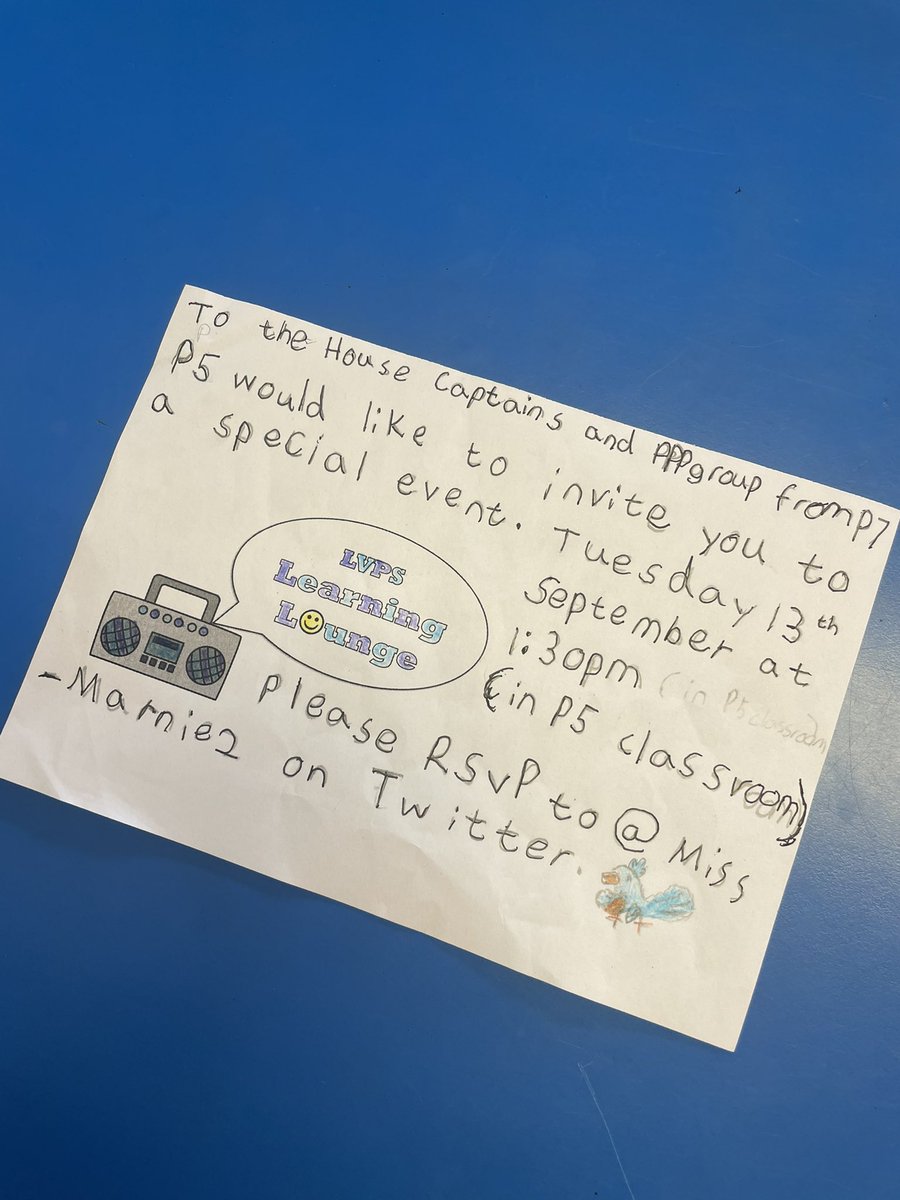 To the House Captains and PPPgroup from P7
P5 would like to invite you to
a special event. Tuesday 13th
September at
1:30pm (in P5 classroom)
(in P5 classroom)
LVPS
Learning
Lounge
Please RSVP to @Miss
-Marnie2 on Twitter.